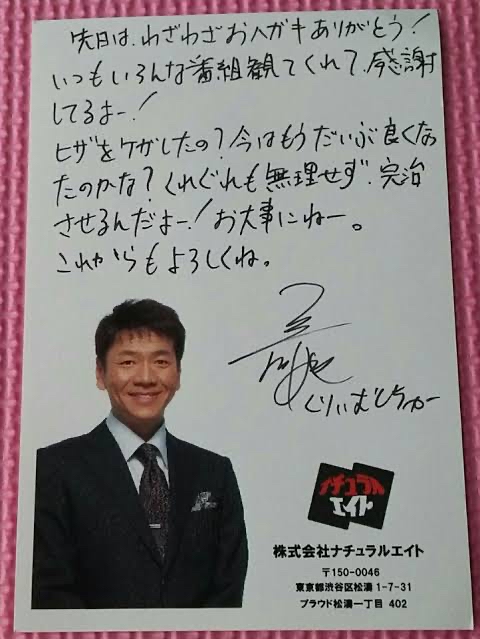 先日は、わざわざおハガキありがとう!
いつもいろんな番組観てくれて、感謝
してるよー!
ヒザをケガしたの?今はもうだいぶ良くなっ
たのかな?くれぐれも無理せず、完治
させるんだよー!お大事にねー。
これからもよろしくね。
くりぃむしちゅー
ナチュラル
エイト
株式会社ナチュラルエイト
〒150-0046
東京都渋谷区松濤 1-7-31
プラウド松濤一丁目 402